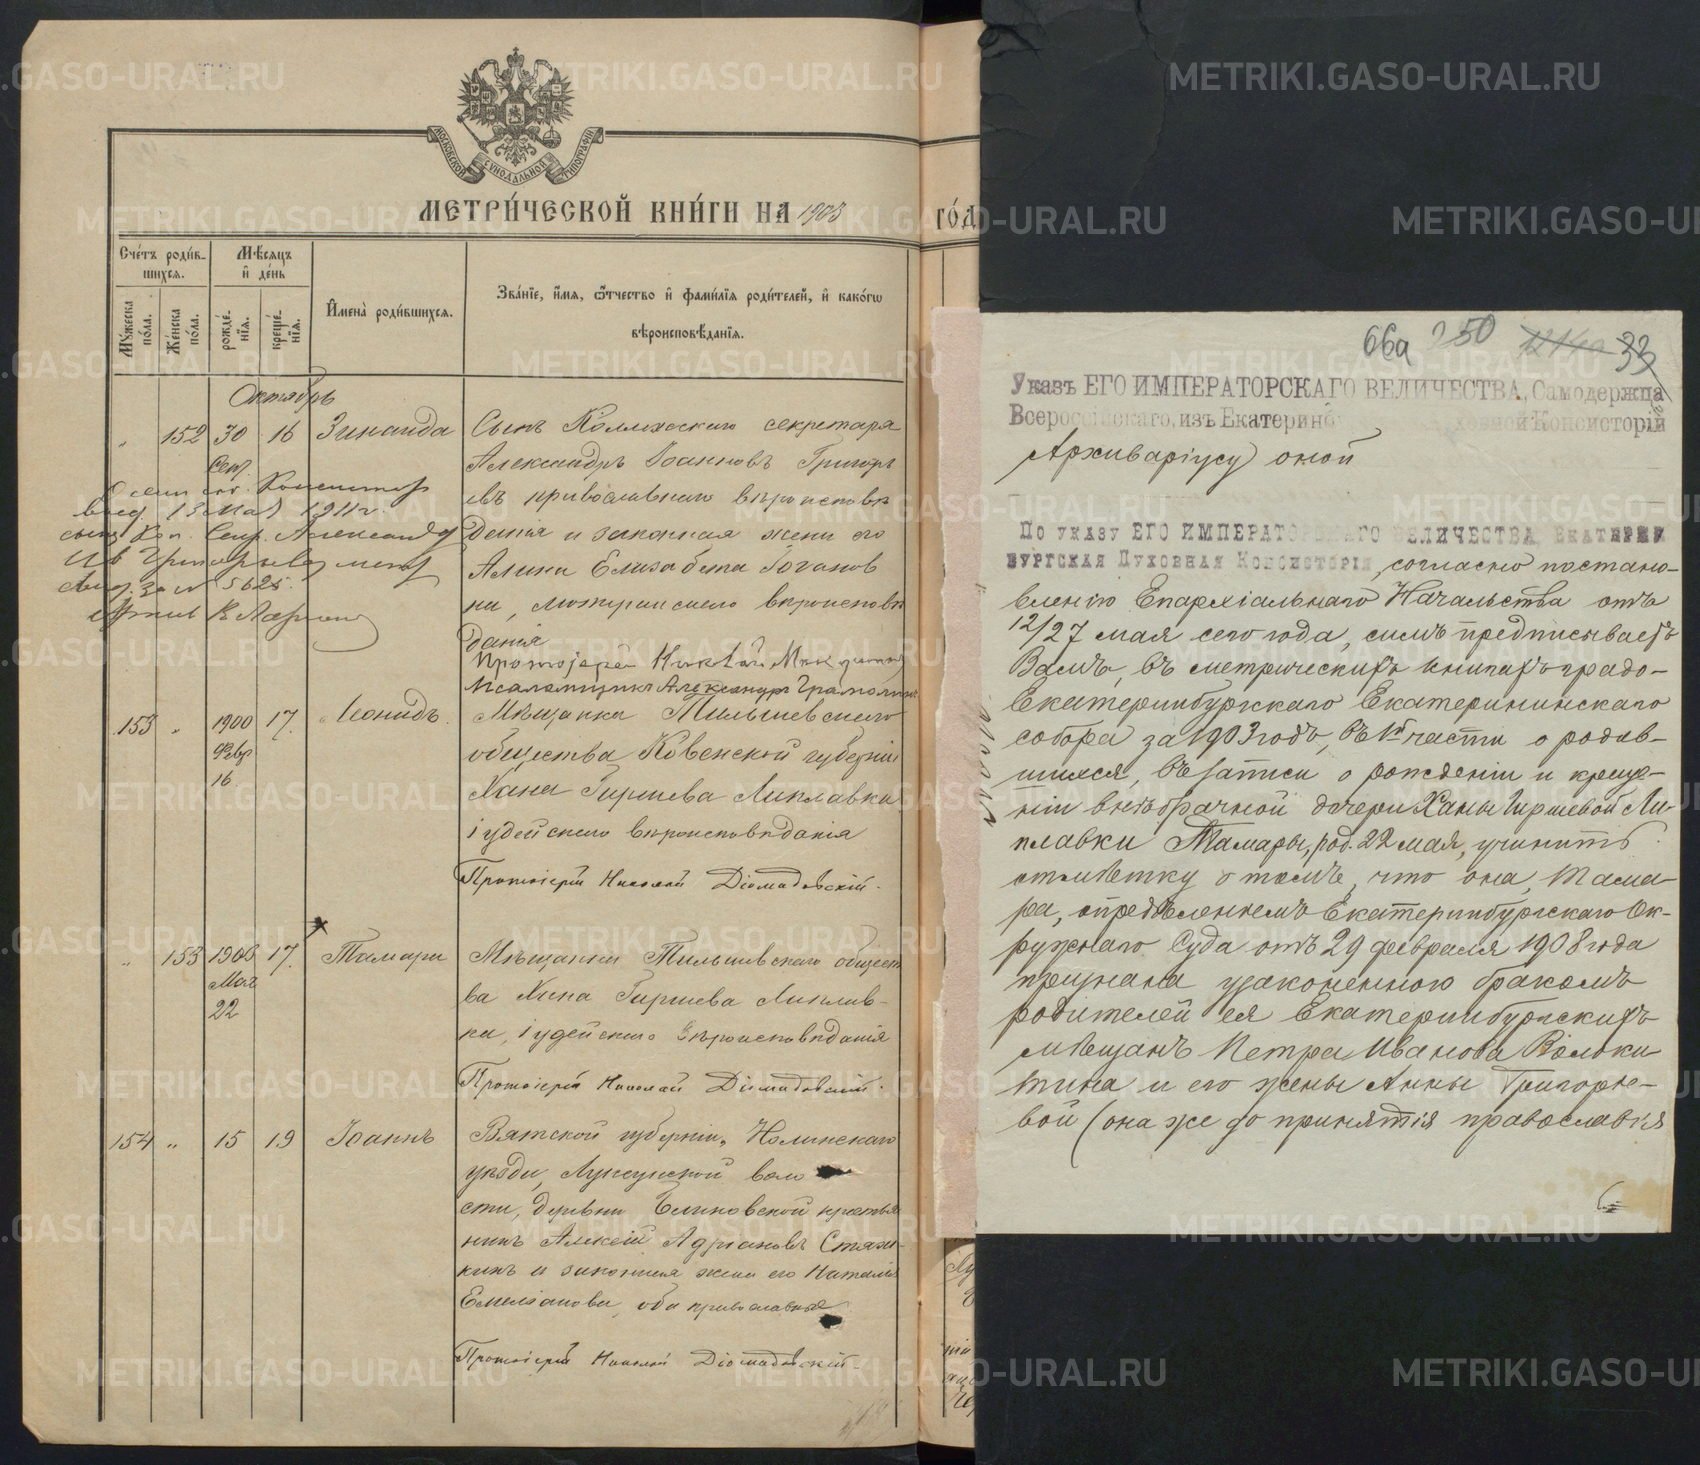 МОСКОВСКОЙ СѴНОДАЛЬНОЙ ТИПОГРАФІИ
МЕТРИ́ЧЕСКОЙ КНИ́ГИ НА 1903
ГО́Д
Сче́тъ роди́в-
шихся.
Мѣ́сяцъ
и҆ де́нь
Му́жеска
по́ла.
Же́нска
по́ла.
рожде́-
нїя.
креще́-
нїя.
И҆мена̀ роди́вшихся.
Зва́нїе, и҆́мя, ѻ҆́тчество и҆ фами́лїя роди́телей, и҆ како́гѡ
вѣроисповѣ́данїя.
Октябрь
" 152 30 16 Зинаида
Сен.
Сынъ Коллежскаго секретаря
Александръ Іоанновъ Григорь
евъ православнаго вѣроисповѣ
данія и законная жена его
Алина Елизабета
на, лютеранскаго вѣроисповѣ
данія
Протоіерей Николай
Псаломщикъ Александръ
15 Мая 1911 г.
сынъ Кол. Секр. Александр
Ив Григорьева
за № 5625.
153 " 1900 17. Леонидъ.
Февр
16
Мѣщанка Тельшевскаго
общества Ковенской губерніи
Хана Гиршева Липлавка
іудейскаго вѣроисповѣданія
Протоіерей Николай Діомидовскій.
" 153 1903 17. Тамара
Мая
22
Мѣщанки Тельшевскаго общест
ва Хана Гиршева Липлав-
ка, іудейскаго вѣроисповѣданія
Протоіерей Николай Діомидовскій.
154 " 15 19 Іоаннъ
Вятской губерніи, Нолинскаго
уѣзда, воло
сти, деревни крестья
нинъ Алексій Адріановъ
кинъ и законная жена его Наталія
Емеліанова, оба православные
Протоіерей Николай Діомидовскій.
66а 250 33
Указъ ЕГО ИМПЕРАТОРСКАГО ВЕЛИЧЕСТВА, Самодержца
Всероссійскаго, изъ Екатеринб ховной Консисторіи
Архиваріусу оной
По указу ЕГО ИМПЕРАТОРСКАГО ВЕЛИЧЕСТВА, Екатерин
бургская Духовная Консисторія, согласно постано-
вленію Епархіальнаго Начальства отъ
12/27 мая сего года, симъ предписываетъ
Вамъ, въ метрическихъ книгахъ градо-
Екатеринбургскаго Екатерининскаго
собора за 1903 годъ, въ 1й части о родив-
шихся, въ записи о рожденіи и креще-
ніи внѣбрачной дочери Ханы Гиршевой Ли-
плавки Тамары, род. 22 мая, учинить
отмѣтку о томъ, что она, Тама-
ра, опредѣленіемъ Екатеринбургскаго Ок-
ружнаго Суда отъ 29 февраля 1908 года
признана узаконенною бракомъ
родителей ея Екатеринбургскихъ
мѣщанъ Петра Иванова Волоки-
тина и его жены Анны Григорье-
вой (она же до принятія православія